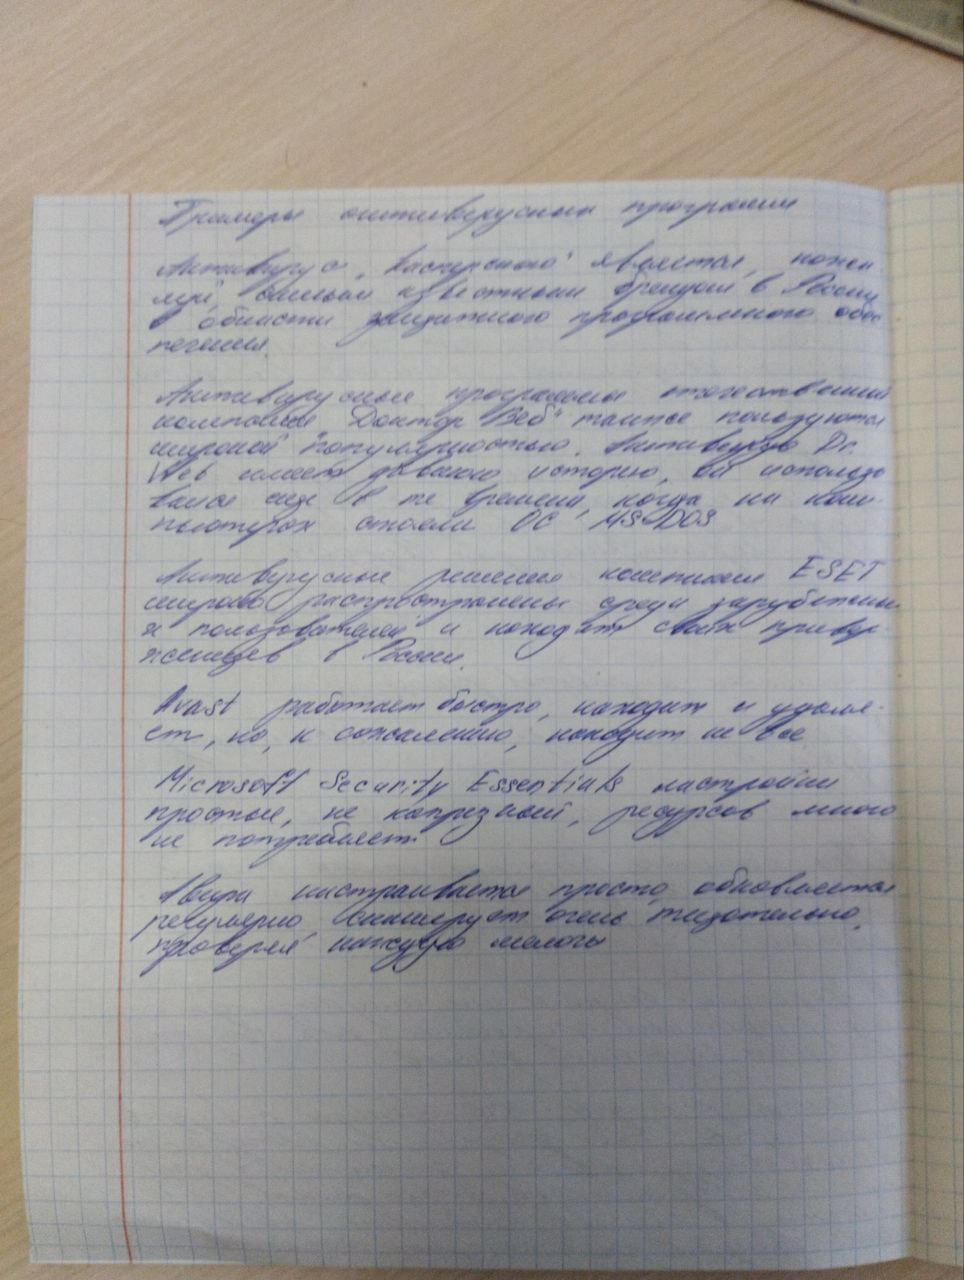 Примеры антивирусных программ
Антивирус „Касперского" является, пожа
луй, самым известным брендом в России
в области защитного программного обес
печения.
Антивирусные программы отечественной
компании „Доктор Веб" также пользуются
широкой популярностью. Антивирус Dr.
Web имеет давнюю историю, он использо
вался еще в те времена, когда на ком-
пьютерах стояли ОС MS-DOS
Антивирусные решения компании ESET
широко распространены среди зарубежны
х пользователей и находят своих привер
женцев в России.
Avast работает быстро, находит и удаля-
ет, но, к сожалению, находит не все
Microsoft Security Essentials настройки
простые, не капризный, ресурсов много
не потребляет
Авира настраивается просто, обновляется
регулярно, сканирует очень тщательно,
проверяя каждую мелочь